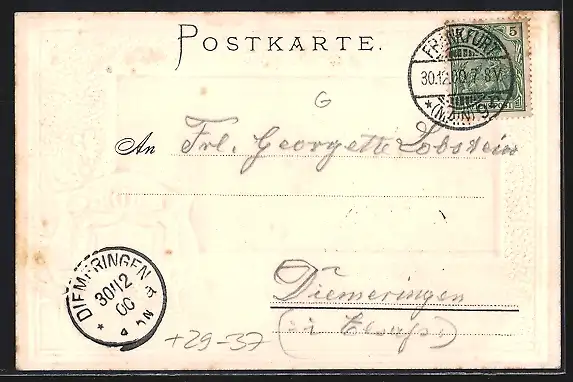 POSTKARTE.
FRANKFURT
5
30.12.00.7-8V.
*(MAIN) 9
G
An Frl. Georgette Lobstein
DIEMERINGEN
30/12
00
*
Diemeringen
(i Elsaß)
+29-37